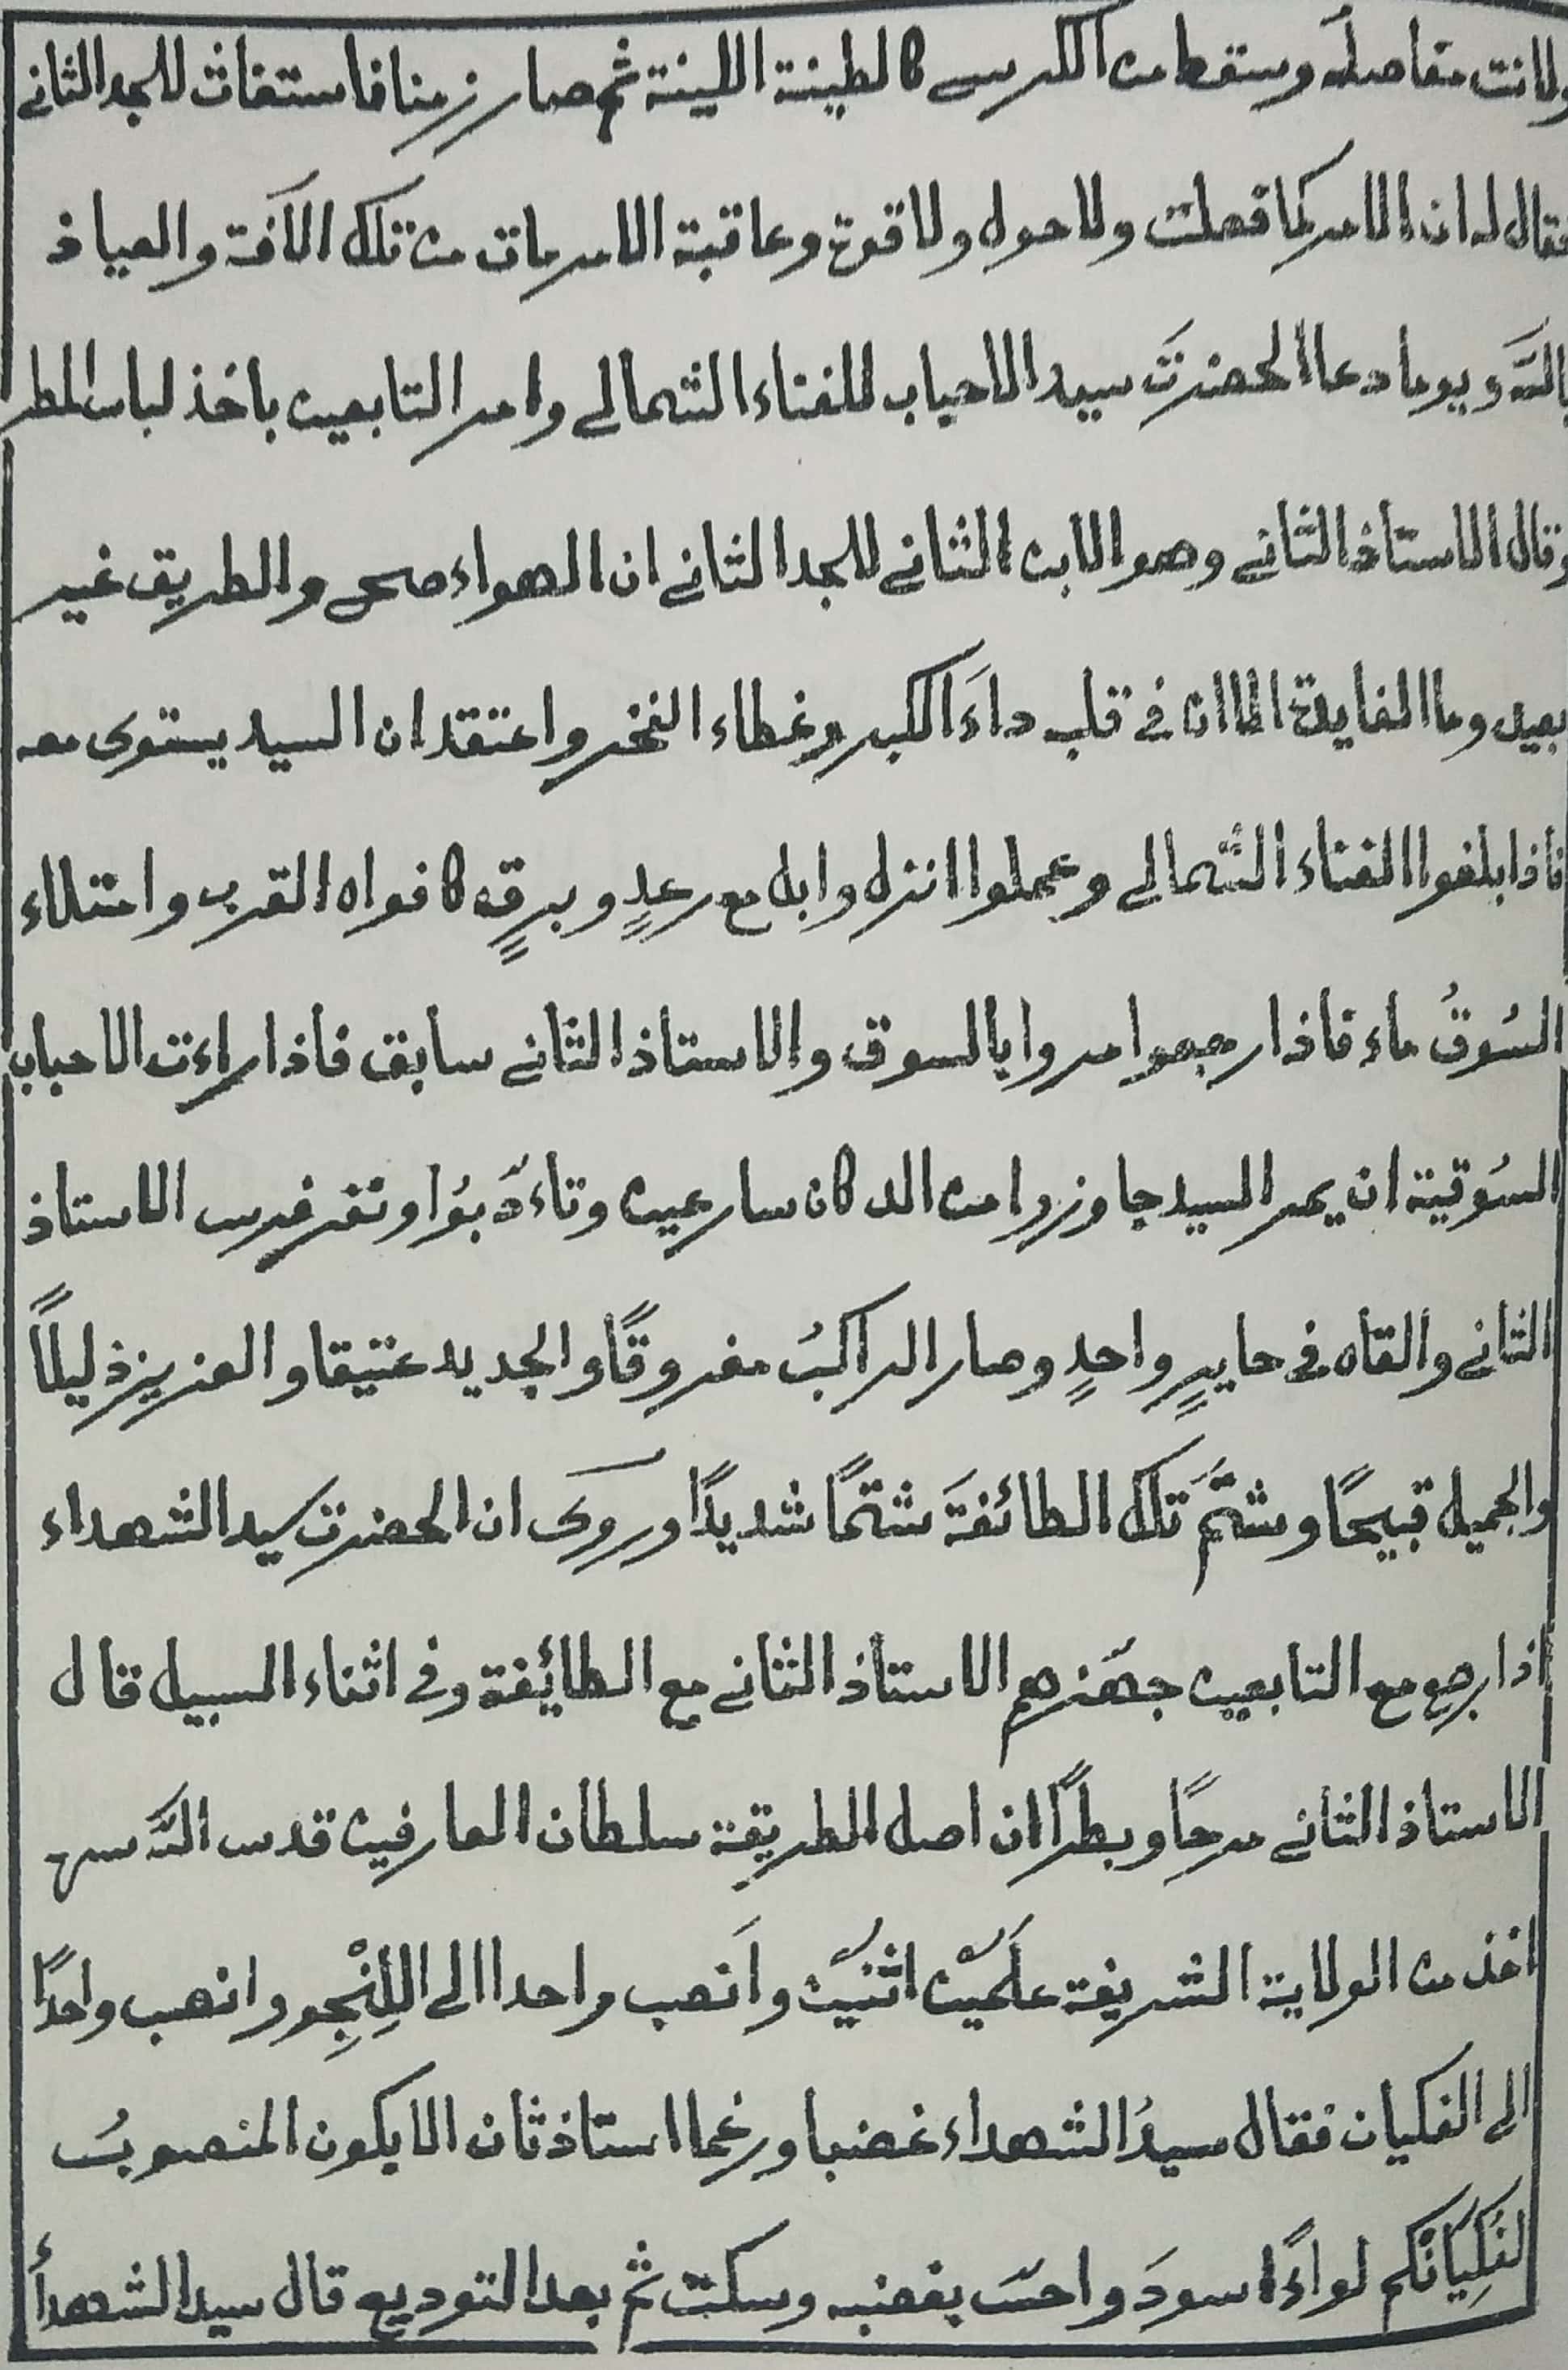 ولانت مفاصله وسقط من الكرسي كالطينة اللينة ثم صار زمنا فاستغاث للجد الثاني
فقال له ان الامر كما فعلت ولا حول ولا قوة وعاقبة الامر مات من تلك الآفة والعياذ
بالله ويوما دعا الحضرت سيد الاحباب للفناء الشمالي وامر التابعين باخذ لباس المطر
وقال الاستاذ الثاني وهو الابن الثاني للجد الثاني ان الهواء صحي والطريق غير
بعيد وما الفايدة الا ان في قلبه داءَ الكبر وغطاء الفخر واعتقد ان السيد يستوى معه
فاذا بلغوا الفناء الشمالي وعملوا انزل وابل مع رعدٍ وبرقٍ كافواه القرب وامتلاء
السُوقُ ماء فاذا رجعوا مروا بالسوق والاستاذ الثاني سابق فاذا راءت الاحباب
السُوقية ان يمر السيد جاوزوا من الدكان سارعين وتاءدّبُوا ونفر فرس الاستاذ
الثاني والقاه في حايرٍ واحدٍ وصار الراكبُ مغروقًا والجديد عتيقا والعزيز ذليلاً
والجميل قبيحًا وشتَّم تلك الطائفةَ شتمًا شديدًا وروى ان الحضرت سيد الشهداء
اذا رجع مع التابعين جهّزهم الاستاذ الثاني مع الطائفة وفي اثناء السبيل قال
الاستاذ الثاني مرحًا وبطرًا ان اصل الطريقة سلطان العارفين قدس الله سره
اخذ من الولاية الشريفة علَمَيْن اثنَيْن وانصب واحدا الى اللِنْجِر وانصب واحدًا
الى الفكيان فقال سيدُ الشهداء غضبا ورغما استاذ ثان الا يكون المنصوبُ
لفَكِيَانْكم لواءً اسودَ واحسّ بغضبه وسكت ثم بعد التوديع قال سيد الشهداءُ